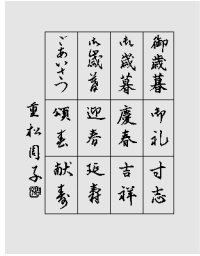 御歳暮
御礼
寸志
御歳暮
慶春
吉祥
御歳暮
迎春
延寿
ごあいさつ
頌春
献寿
重松周子